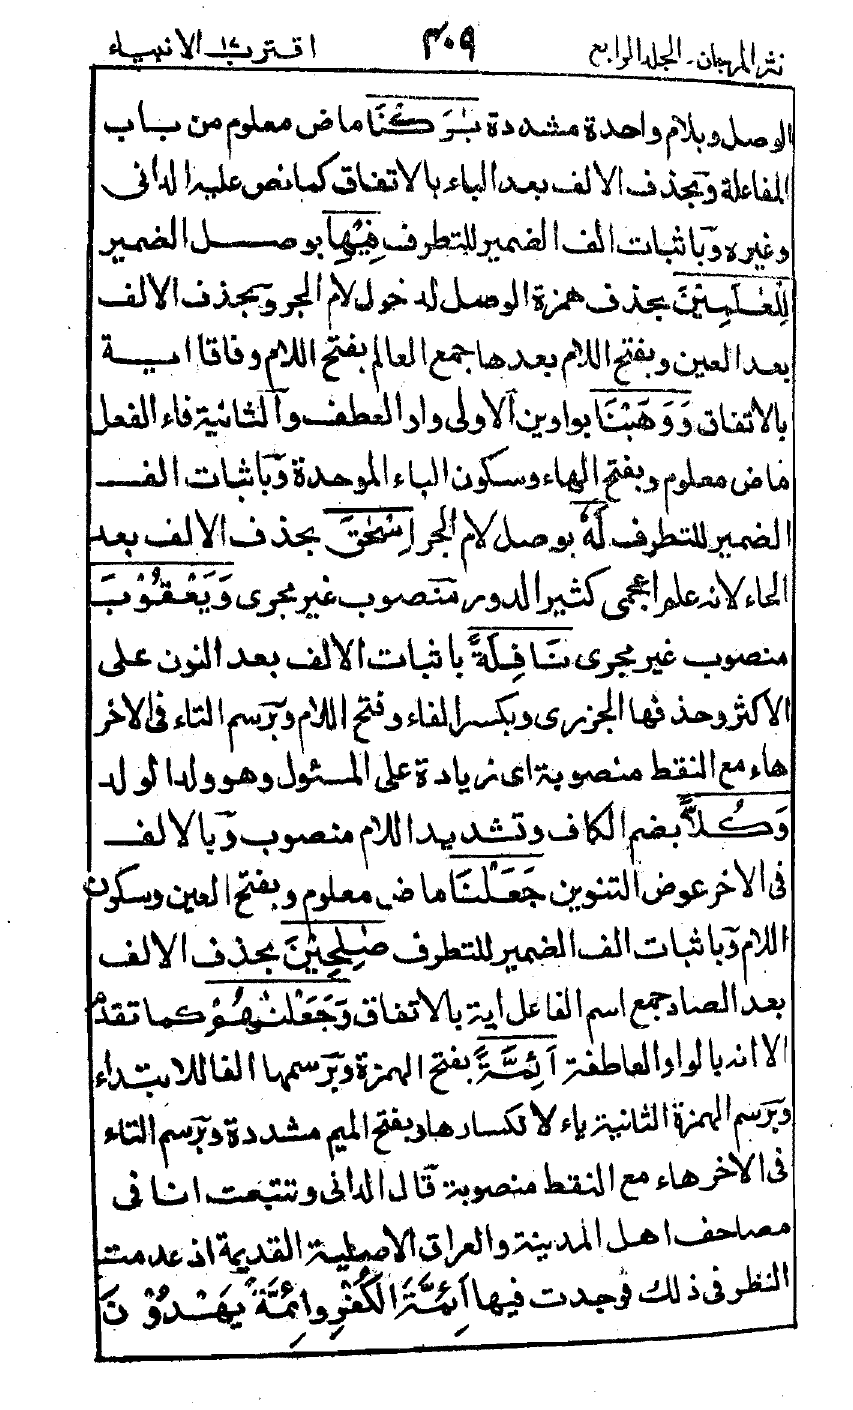 نثر المرجان - الجلد الرابع ٣٠٩ اقترب ١٧ الانبياء
الوصل وبلام واحدة مشددة بٰرَكْنَا ماض معلوم من باب
المفاعلة وبحذف الالف بعد الباء بالاتفاق كما نص عليه الدانى
وغيره وباثبات الف الضمير للتطرف فِيْهَا بوصل الضمير
لِلْعٰلَمِيْنَ بحذف همزة الوصل لدخول لام الجر وبحذف الالف
بعد العين وبفتح اللام بعدها جمع العالم بفتح اللام وفاقا اية
بالاتفاق وَوَهَبْنَا بواوين الاولى واو العطف والثانية فاء الفعل
ماض معلوم وبفتح الهاء وسكون الباء الموحدة وباثبات الف
الضمير للتطرف لَهٗ بوصل لام الجر اِسْحٰقَ بحذف الالف بعد
الحاء لانه علم اعجمى كثير الدور منصوب غير مجرى وَيَعْقُوْبَ
منصوب غير مجرى نَافِلَةً باثبات الالف بعد النون على
الاكثر وحذفها الجزرى وبكسر الفاء وفتح اللام وبرسم التاء فى الاخر
هاء مع النقط منصوبة اى زيادة على المسئول وهو ولد الولد
وَكُلًّا بضم الكاف وتشديد اللام منصوب وبالالف
فى الاخر عوض التنوين جَعَلْنَا ماض معلوم وبفتح العين وسكون
اللام وباثبات الف الضمير للتطرف صٰلِحِيْنَ بحذف الالف
بعد الصاد جمع اسم الفاعل اية بالاتفاق وَجَعَلْنٰهُمْ كما تقدم
الا انه بالواو العاطفة اَئِمَّةً بفتح الهمزة وبرسمها الفا للابتداء
وبرسم الهمزة الثانية ياء لانكسارها وبفتح الميم مشددة وبرسم التاء
فى الاخر هاء مع النقط منصوبة قال الدانى وتتبعت انا فى
مصاحف اهل المدينة والعراق الاصلية القديمة اذ عدمت
النظر فى ذلك فوجدت فيها اَئِمَّةَ الْكُفْرِ وائِمَّةً يَهْدُوْنَ